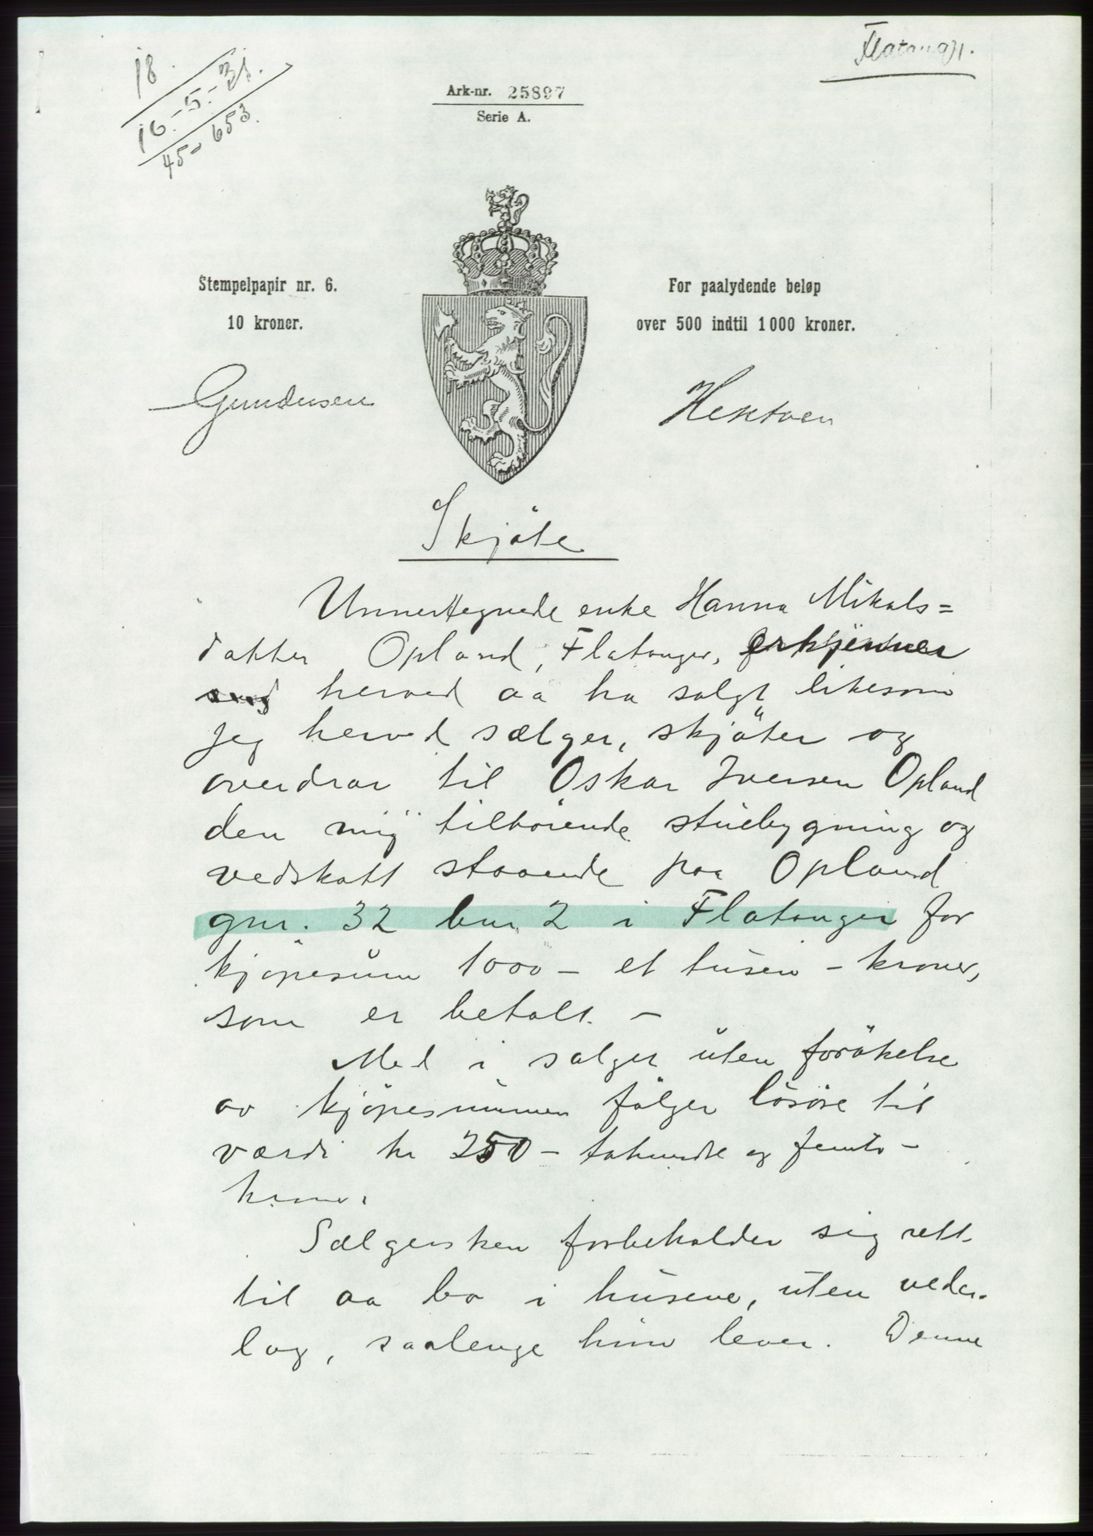 18.
16.-5.-31.
45= 653.
Flatangr.
Ark-nr. 25897
Serie A.
Stempelpapir nr. 6.
10 kroner.
For paalydende beløp
over 500 indtil 1000 kroner.
Gundersen
Hektoen
Skjöte
Unnertegnede enke Hanna Mikals=
datter Opland, Flatanger, erkjenner
herved aa ha solgt likesom
jeg herved sælger, skjöter og
overdrar til Oskar Iversen Opland
den mig tilhörende stuebygning og
vedskott staaende paa Opland
gnr. 32 bnr 2 i Flatanger for
kjöpesum 1000 - et tusen - kroner,
som er betalt. -
Med i salget uten forökelse
av kjöpesummen fölger lösöre til
værdi kr 250 - tohundre og femti -
kroner.
Sælgersken forbeholder sig rett
til aa bo i husene, uten veder-
lag, saalenge hun lever. Denne